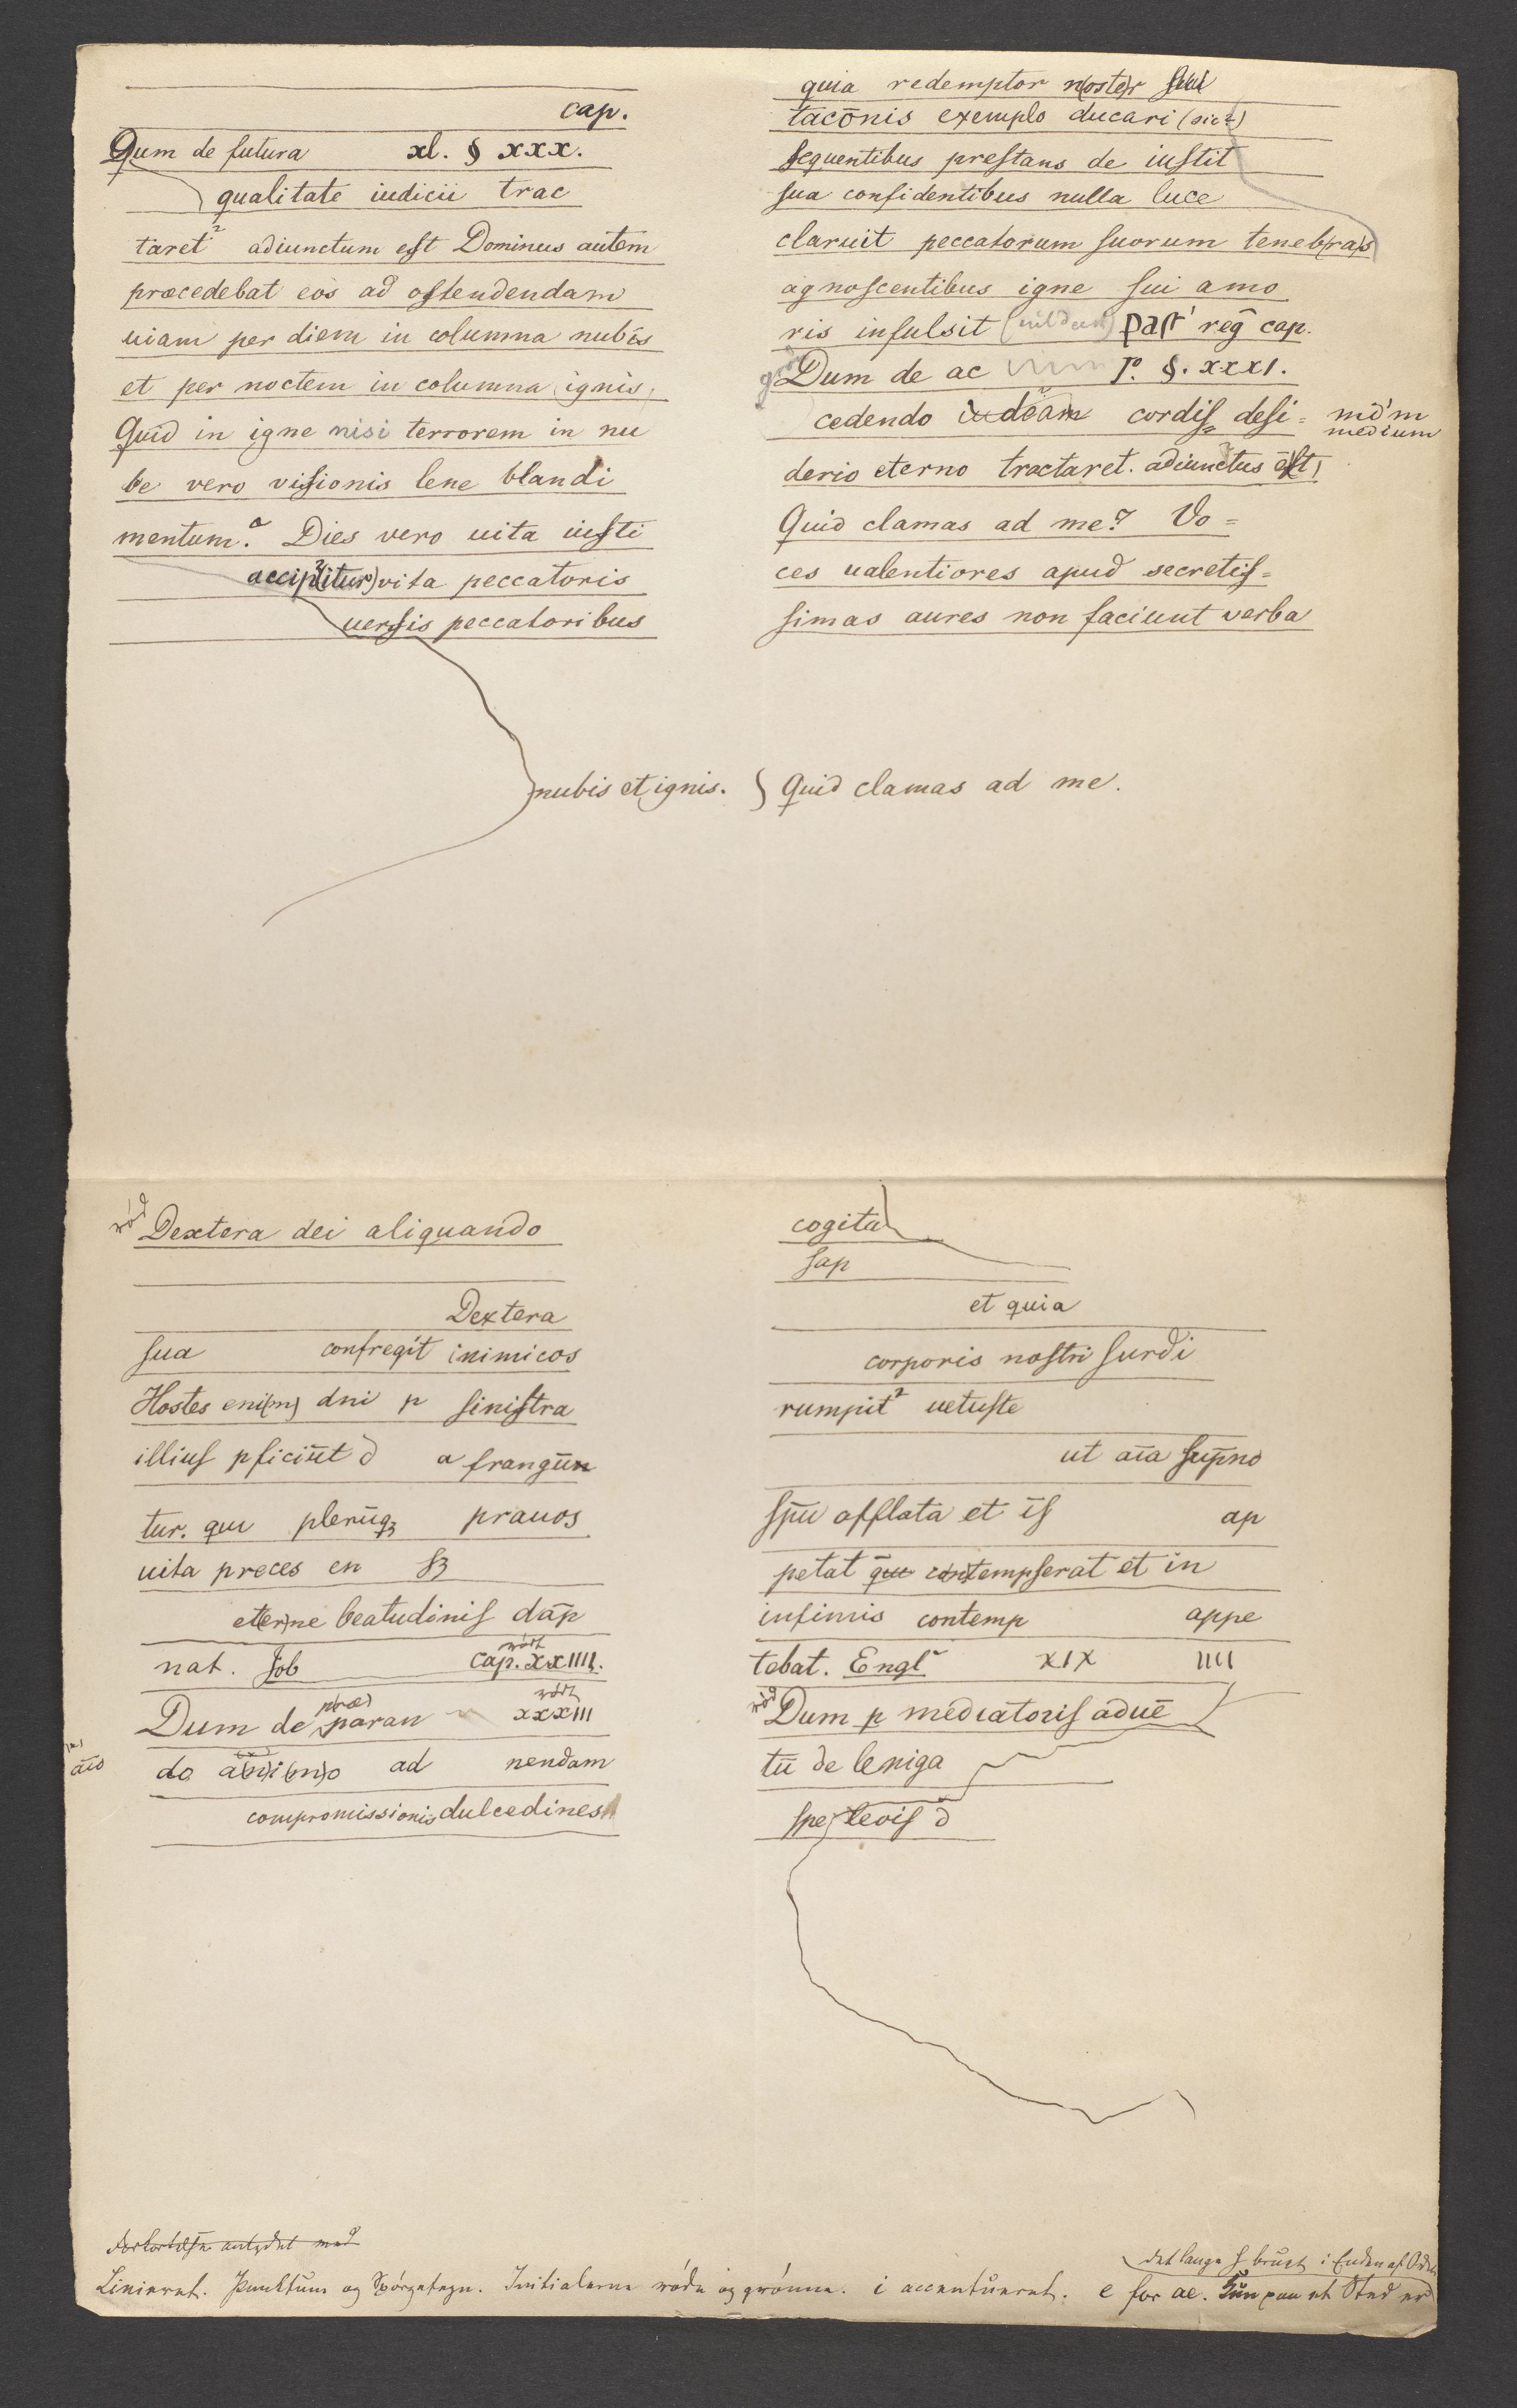 cap.
Qum de futura xl. § xxx.
qualitate iudicii trac
taret² adiunctum eſt Dominus autem
præcedebat eos ad oſtendendam
uiam per diem in columna nubis
et per noctem in columna ignis,
Quid in igne nisi terrorem in nu
be vero viſionis lene blandi
mentum. Dies vero uita iuſti
accip(itur) vita peccatoris
uerſis peccatoribus
nubis et ignis.
quia redemptor n(oste)r
tacōnis exemplo ducari (sic?)
ſequentibus preſtans de iuſtit
ſua confidentibus nulla luce
claruit peccatorum ſuorum teneb(ra)s
agnoſcentibus igne ſui amo
ris infulsit paſt' reḡ cap.
Dum de ac §. xxxı.
cedendo cordiſ deſi= mō'm
medium
derio eterno tractaret. adiunctus ēſt)
Quid clamas ad me? Vo=
ces ualentiores apud secretiſ=
ſimas aures non faciunt verba
Quid clamas ad me.
röd
Dextera dei aliquando
Dextera
ſua confregit inimicos
Hostes eni(m) dni p ſiniſtra
illiuſ pficiūt d a frangūn
tur. qui plerūqꝫ prauos
uita preces en ſꝫ
et(er)ne beatudiniſ dāp
nat. Job cap. xxıııı.
Dum de p(ræ)paran xxxııı
do a(n)i(m)o ad nendam
āīo
compromissionis dulcedines
cogita
ſap
et quia
corporis noſtri ſurdi
rumpit² uetuſte
ut aīa ſup̄no
ſpū afflata et iſ ap
petat contempſerat et in
infimis contemp appe
tebat. Engl XIX IIII
röd
Dum p mediatoriſ aduē
tū de leniga
ſpe leoiſ d
Linieret. Punktum og Spörgetegn. Initialerne röde og grönne. i accentueret. e for ae.
det lange ſ brugt i Enden af Orden